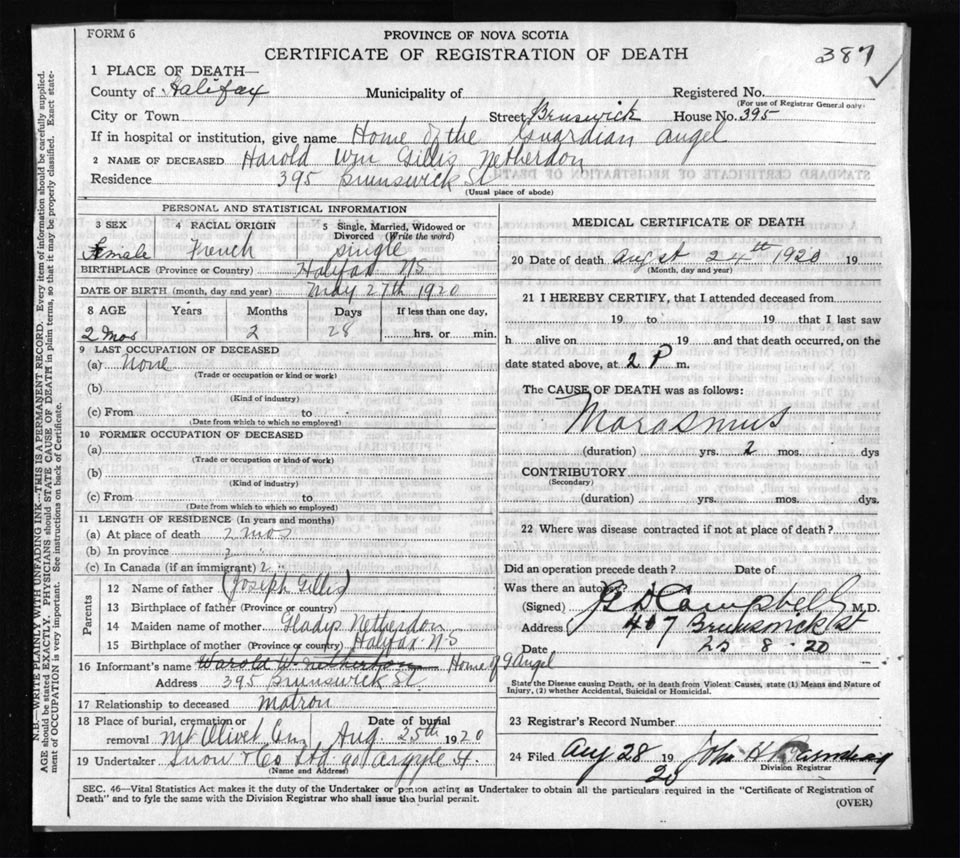 FORM 6
PROVINCE OF NOVA SCOTIA
CERTIFICATE OF REGISTRATION OF DEATH
387
1 PLACE OF DEATH—
County of Halifax Municipality of Registered No.
(For use of Registrar General only)
City or Town Street Brunswick House No. 395
If in hospital or institution, give name Home of the Guardian Angel
2 NAME OF DECEASED Harold Wm Gillis Netherdon
Residence 395 Brunswick St
(Usual place of abode)
PERSONAL AND STATISTICAL INFORMATION
3 SEX 4 RACIAL ORIGIN 5 Single, Married, Widowed or Divorced (Write the word)
male French Single
BIRTHPLACE (Province or Country) Halifax NS
DATE OF BIRTH (month, day and year) May 27th 1920
8 AGE Years Months Days If less than one day,
2 Mos 2 28 hrs. or min.
9 LAST OCCUPATION OF DECEASED
(a) None
(Trade or occupation or kind or work)
(b)
(Kind of industry)
(c) From to
(Date from which to which so employed)
10 FORMER OCCUPATION OF DECEASED
(a)
(Trade or occupation or kind of work)
(b)
(Kind of industry)
(c) From to
(Date from which to which so employed)
11 LENGTH OF RESIDENCE (In years and months)
(a) At place of death 2 mos
(b) In province 2 "
(c) In Canada (if an immigrant) 2 "
Parents
12 Name of father (Joseph Gillis)
13 Birthplace of father (Province or country)
14 Maiden name of mother Gladys Netherdon
15 Birthplace of mother (Province or country) Halifax N S
16 Informant's name Home of G Angel
Address 395 Brunswick St.
17 Relationship to deceased Matron
18 Place of burial, cremation or removal Mt Olivet Cem Date of burial Aug. 25th 1920
19 Undertaker Snow & Co Ltd 90 Argyle St.
(Name and Address)
MEDICAL CERTIFICATE OF DEATH
20 Date of death August 24th 1920 19
(Month, day and year)
21 I HEREBY CERTIFY, that I attended deceased from
19 to 19 that I last saw
h alive on 19 and that death occurred, on the
date stated above, at 2 P m.
The CAUSE OF DEATH was as follows:
Marasmus
(duration) yrs. 2 mos. dys
CONTRIBUTORY
(Secondary)
(duration) yrs. mos. dys.
22 Where was disease contracted if not at place of death?
Did an operation precede death? Date of
Was there an autopsy
(Signed) Campbell M.D.
Address 407 Brunswick St
Date 25 8 - 20
State the Disease causing Death, or in death from Violent Causes, state (1) Means and Nature of
Injury, (2) whether Accidental, Suicidal or Homicidal.
23 Registrar's Record Number
24 Filed Aug 28 19 20 John H
Division Registrar
SEC. 46—Vital Statistics Act makes it the duty of the Undertaker or person acting as Undertaker to obtain all the particulars required in the "Certificate of Registration of
Death" and to fyle the same with the Division Registrar who shall issue the burial permit.
(OVER)
N.B.—WRITE PLAINLY WITH UNFADING INK—THIS IS A PERMANENT RECORD. Every item of information should be carefully supplied.
AGE should be stated EXACTLY. PHYSICIANS should STATE CAUSE OF DEATH in plain terms, so that it may be properly classified. Exact state-
ment of OCCUPATION is very important. See instructions on back of Certificate.